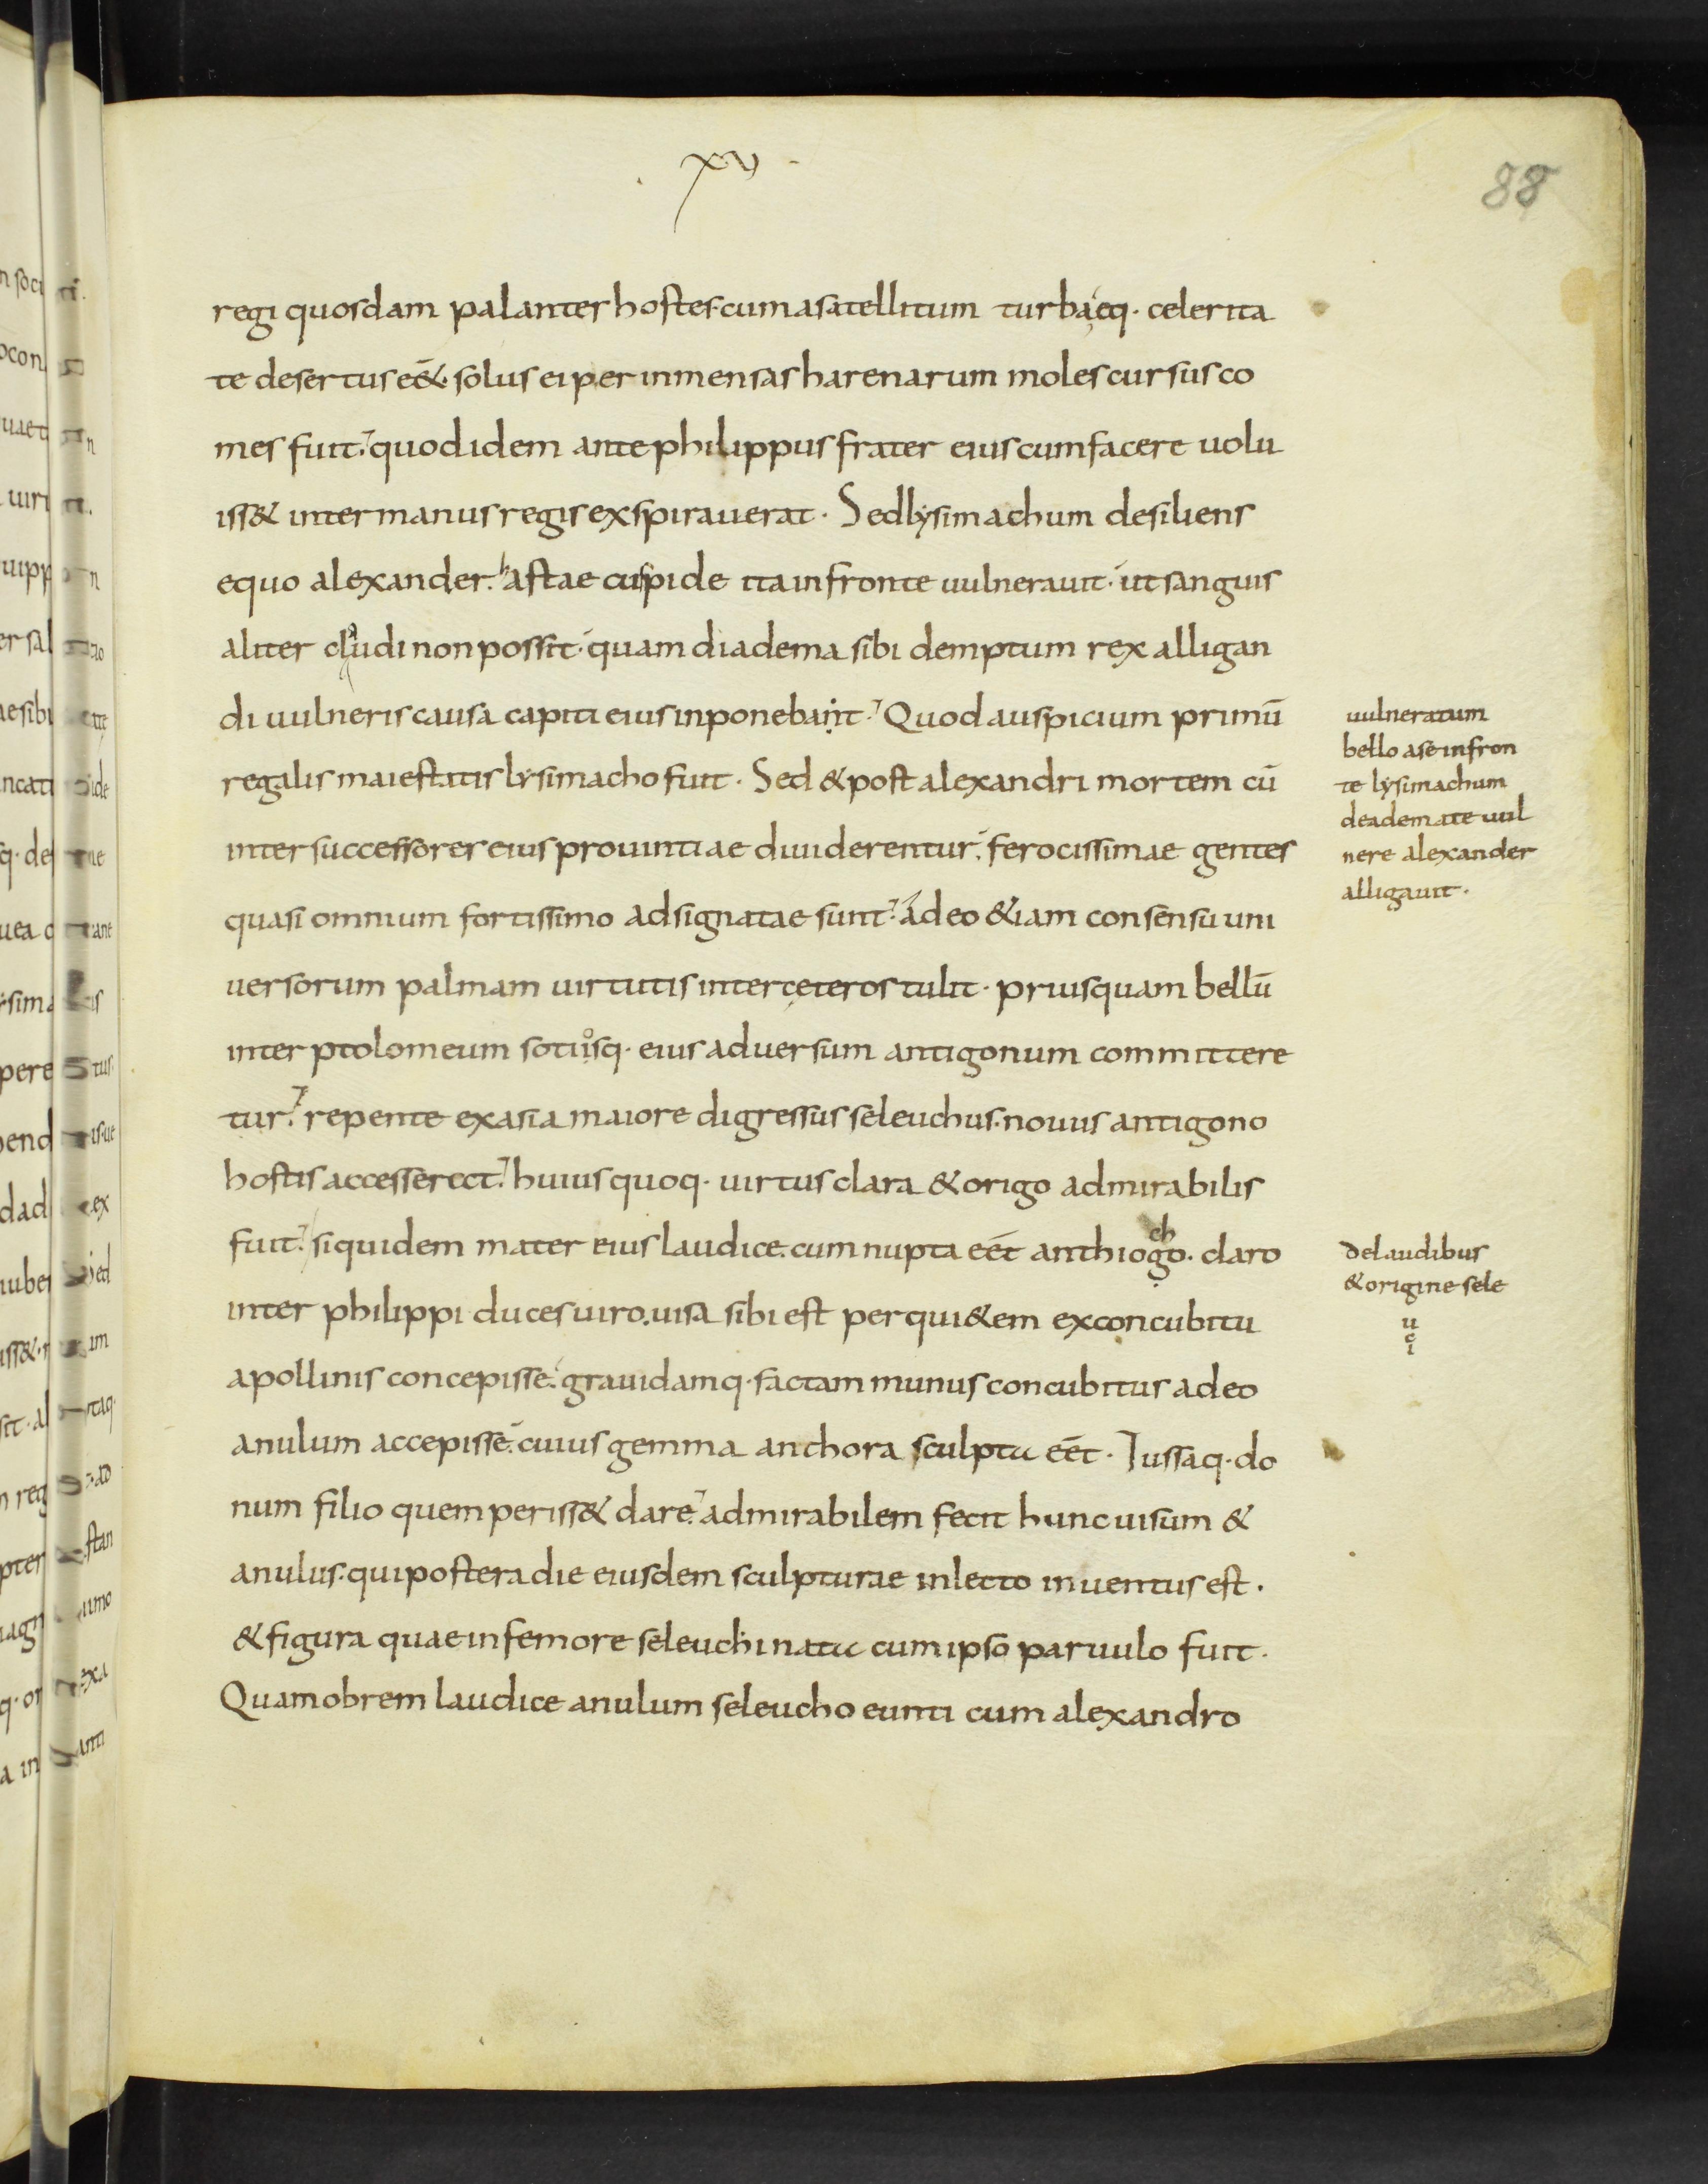 xv
88
regi quosdam palanter hostes cum a satellitum turba eq· celerita
te desertus eēt· solus ei per inmensas harenarum moles cursus co
mes fuit· quod idem ante philippus frater eius cum facere uolu
iss& inter manus regis exspirauerat· Sed lysimachum desiliens
equo alexander· hastae cuspide ita in fronte uulnerauit· ut sanguis
aliter cludi non possit· quam diadema sibi demptum rex alligan
di uulneris causa capiti eius inponebant· Quod auspicium primū
regalis maiestatis lysimacho fuit· Sed & post alexandri mortem cū
inter successorer eius prouintiae diuiderentur· ferocissimae gentes
quasi omnium fortissimo adsignatae sunt· adeo &iam consensu uni
uersorum palmam uirtutis inter ceteros tulit· priusquam bellū
inter ptolomeum sotiosq· eius aduersum antigonum committere
tur· repente ex asia maiore digressus seleuchus· nouus antigono
hostis accesserect· huius quoq· uirtus clara & origo admirabilis
fuit· siquidem mater eius laudice· cum nupta eēt anthiocho· claro
inter philippi duces uiro· uisa sibi est per qui&em ex concubitu
apollinis concepisse· grauidamq· factam munus concubitus a deo
anulum accepisse· cuius gemma anchora sculptu eēt· Iussaq· do
num filio quem periss& dare· admirabilem fecit hunc uisum &
anulus· qui postera die eiusdem sculpturae in lecto inuentus est·
& figura quae in femore seleuchi natu cum ipso paruulo fuit·
Quamobrem laudice anulum seleucho eunti cum alexandro
uulneratum
bello a se in fron
te lysimachum
deademate uul
nere alexander
alligauit·
de laudibus
& origine sele
u
c
i